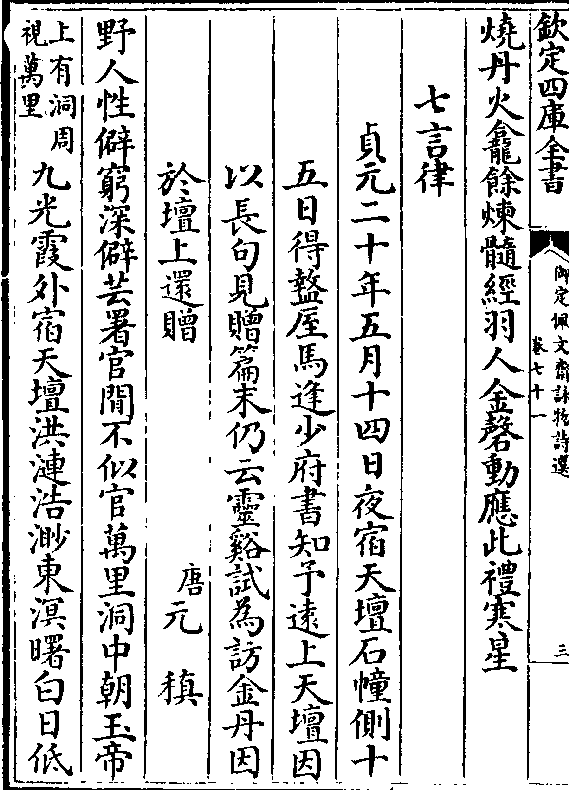 欽定四庫全書
御定佩文齋詠物詩選
卷七十一
三
燒丹火龕餘煉髓經羽人金磬動應此禮寒星
七言律
貞元二十年五月十四日夜宿天壇石幢側十
五日得盩厔馬逢少府書知予遠上天壇因
以長句見贈篇末仍云靈谿試為訪金丹因
於壇上還贈
唐元稹
野人性僻窮深僻芸署官閒不似官萬里洞中朝玉帝
上有洞周
視萬里
九光霞外宿天壇洪漣浩渺東溟曙白日低